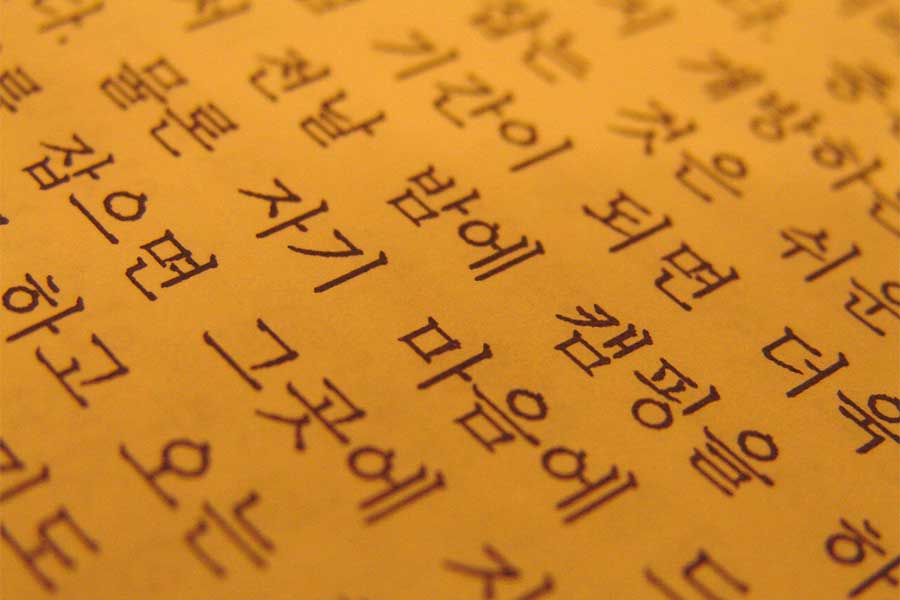 개방하는
잡는 것은 쉬운
기간이 되면 더욱
전날 밤에 캠핑을 하
물론 자기 마음에 드
잡으면 그곳에 지
하고 오는
도